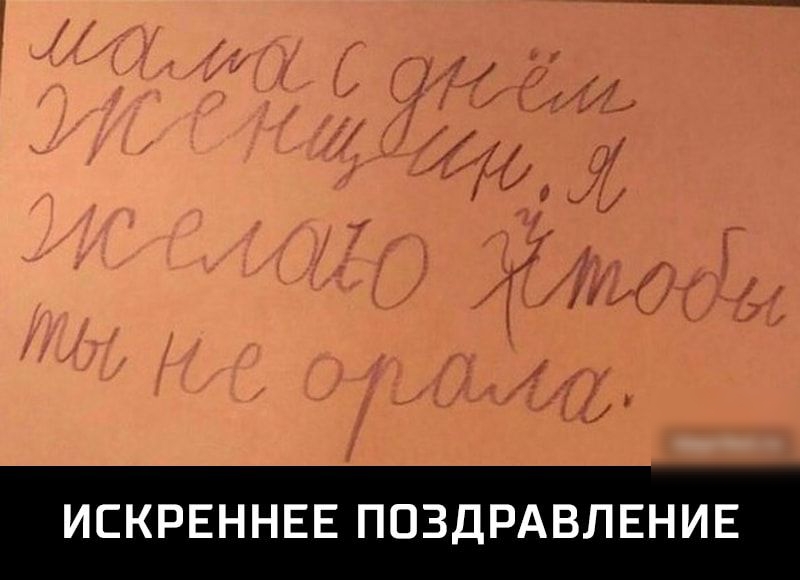 мама с днём
женщин. я
желаю чтобы
ты не орала.
ИСКРЕННЕЕ ПОЗДРАВЛЕНИЕ